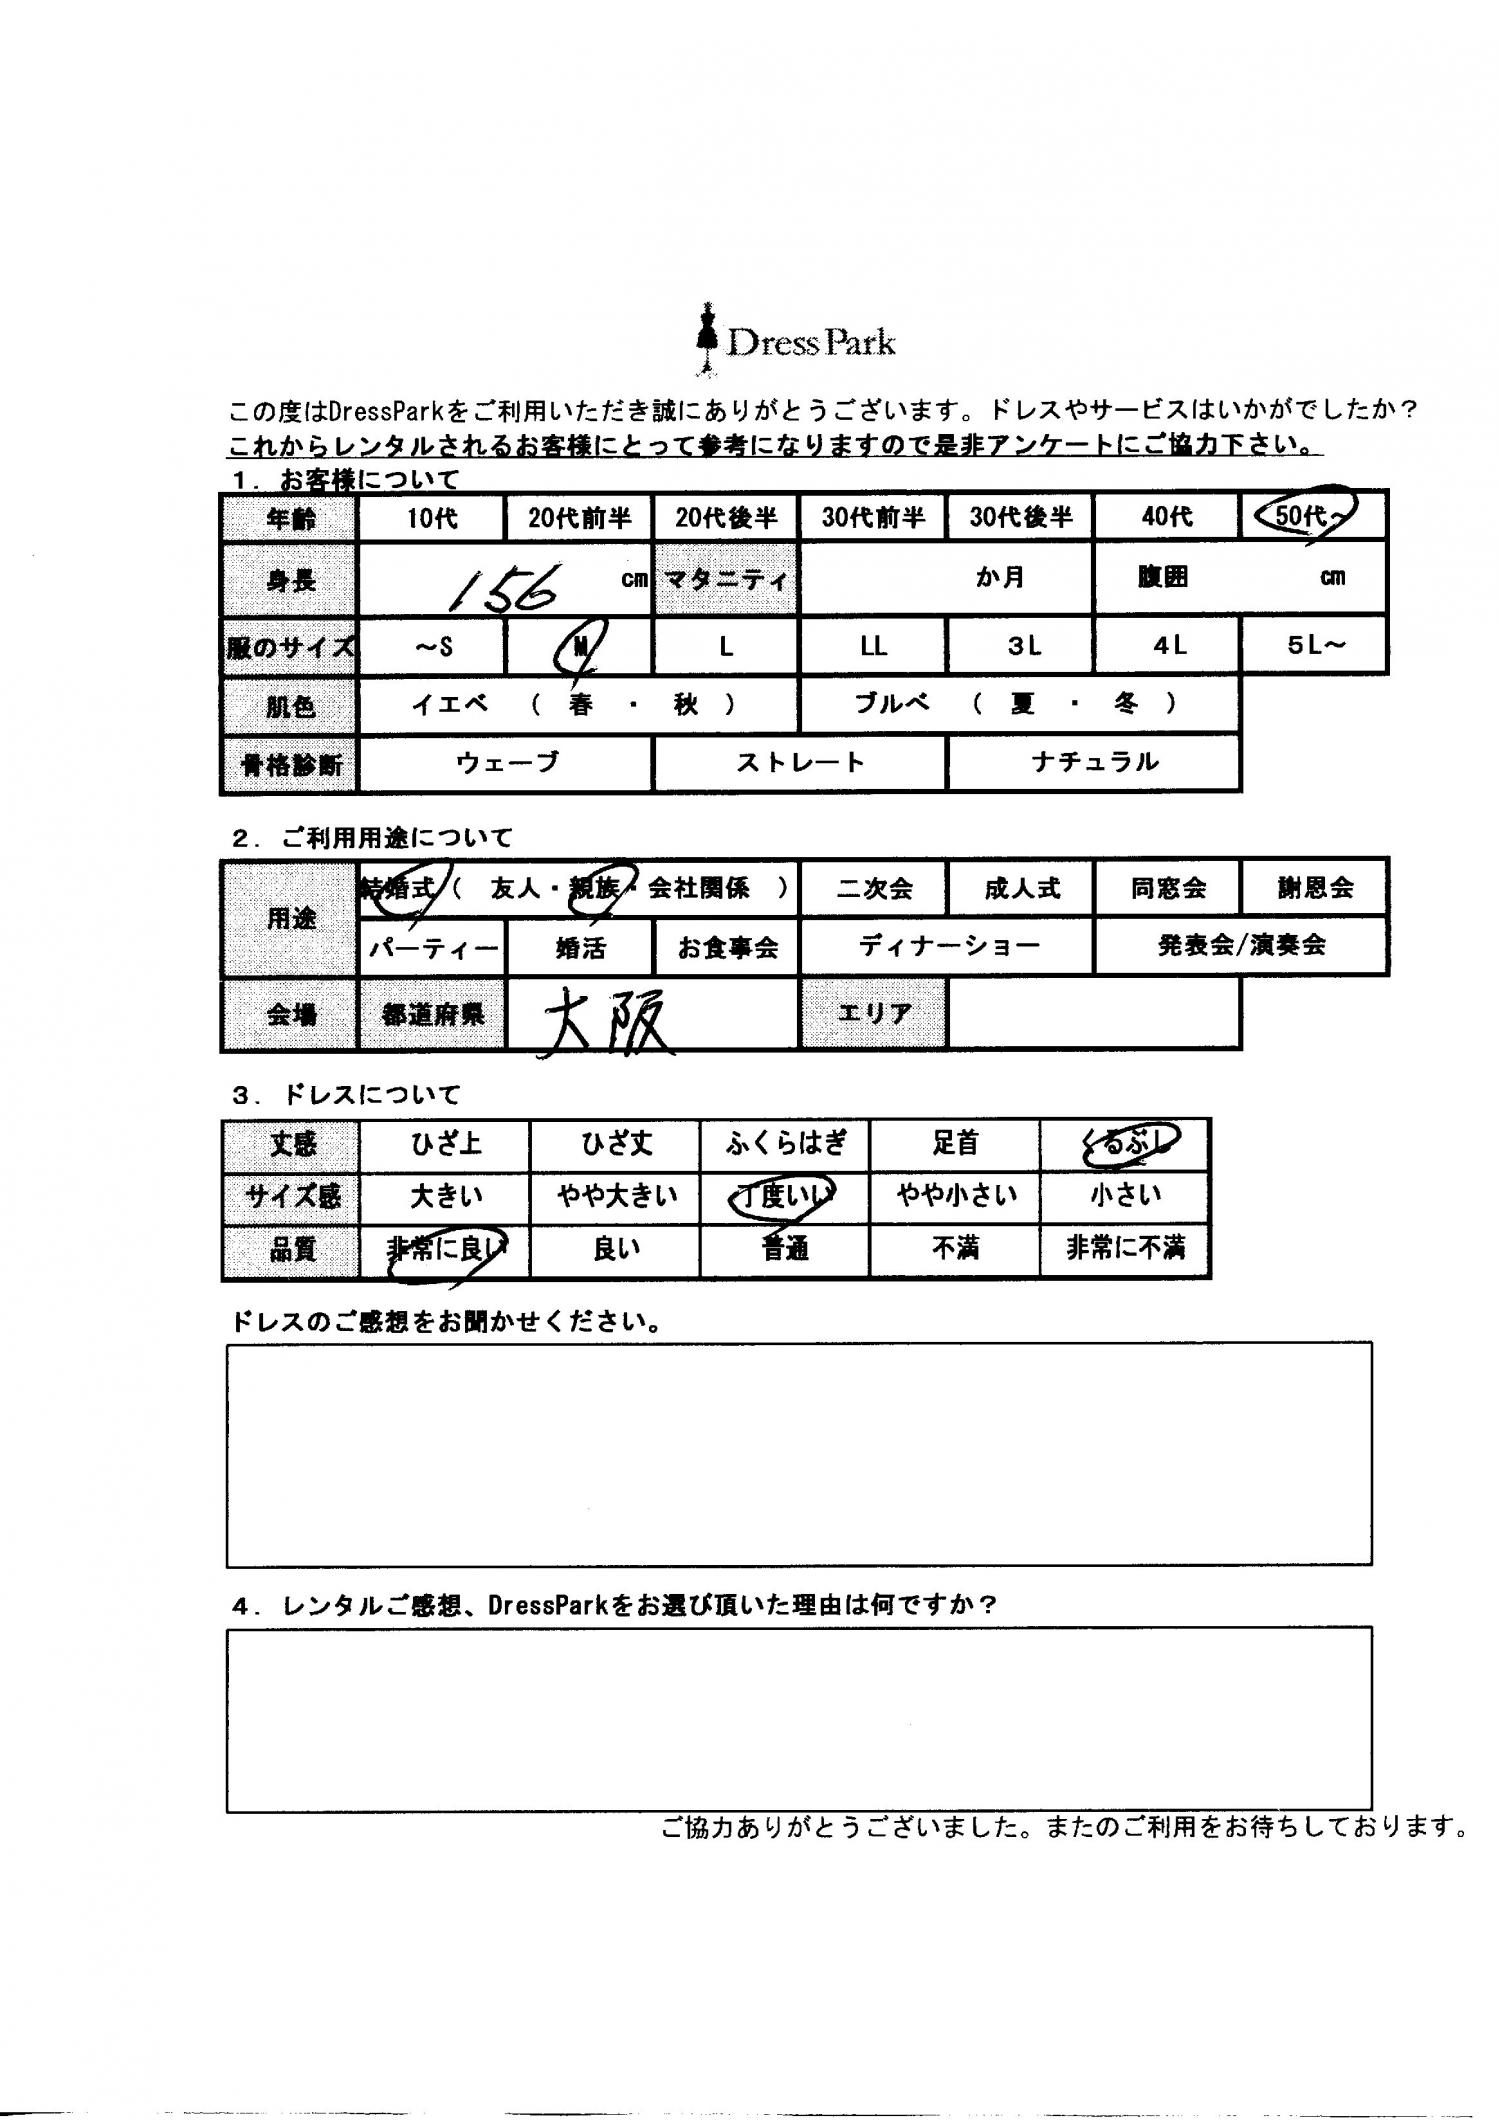 Dress Park
この度はDressParkをご利用いただき誠にありがとうございます。ドレスやサービスはいかがでしたか？
これからレンタルされるお客様にとって参考になりますので是非アンケートにご協力下さい。
１．お客様について
年齢 10代 20代前半 20代後半 30代前半 30代後半 40代 50代～
身長 156 cm マタニティ か月 腹囲 cm
服のサイズ ～S M L LL 3L 4L 5L～
肌色 イエベ （ 春 ・ 秋 ） ブルベ （ 夏 ・ 冬 ）
骨格診断 ウェーブ ストレート ナチュラル
２．ご利用用途について
用途 結婚式（ 友人・親族・会社関係 ） 二次会 成人式 同窓会 謝恩会
パーティー 婚活 お食事会 ディナーショー 発表会/演奏会
会場 都道府県 大阪 エリア
３．ドレスについて
丈感 ひざ上 ひざ丈 ふくらはぎ 足首 くるぶし
サイズ感 大きい やや大きい 丁度いい やや小さい 小さい
品質 非常に良い 良い 普通 不満 非常に不満
ドレスのご感想をお聞かせください。
４．レンタルご感想、DressParkをお選び頂いた理由は何ですか？
ご協力ありがとうございました。またのご利用をお待ちしております。